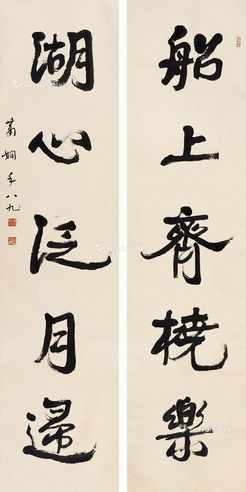 船上齊橈樂
湖心泛月歸
蕭嫻年八九